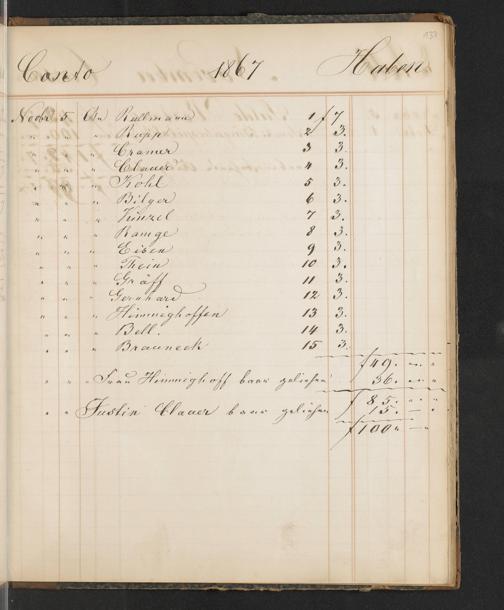 Conto 1867 Haben
Novbr 5 An Rullmann 1 f 7
" " " Rupp 2 3.
" " " Cramer 3 3.
" " " Clauer 4 3.
" " " Kohl 5 3.
" " " Bilger 6 3.
" " " Künzel 7 3.
" " " Ramge 8 3.
" " " Eisen 9 3.
" " " Thein 10 3.
" " " Gräff 11 3.
" " " Gernhard 12 3.
" " " Himmighoffen 13 3.
" " " Bell. 14 3.
" " " Brauneck 15 3.
f 49. " "
" " " Frau Himmighoff baar geliehen 36. " "
f 85. " "
" " Justin Clauer baar geliehen 15. " "
f 100 " "